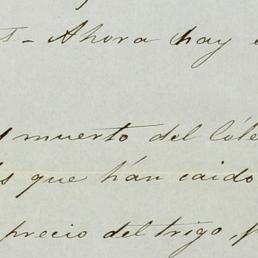 - Ahora hay
muerto del Cóle
s que hán caido
precio del trigo,